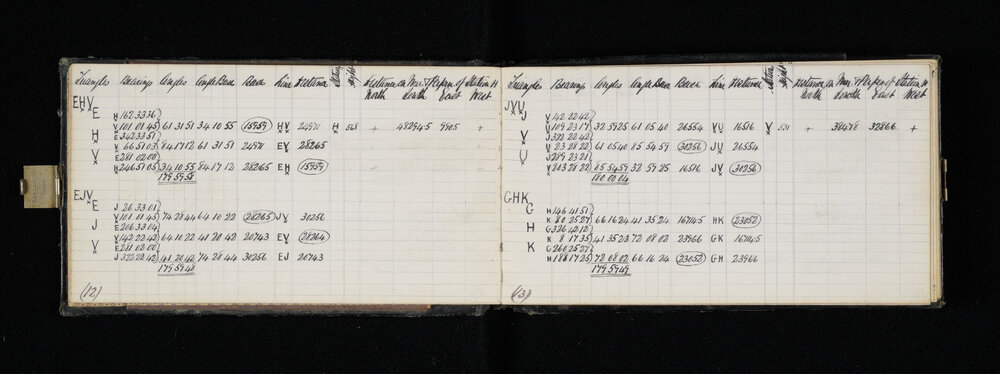 Triangles Bearings Angles Angle Base Base Line Distance Station Height Distance on Mer. & Perpen of Station H
North South East West
EHV
E H 162 33 36
V 101 01 45 61 31 51 34 10 55 (15959) HV 24971 H 568 + 482945 9905 +
H E 342 33 51
V 66 51 03 84 17 12 61 31 51 24971 EV 28265
V E 281 02 00
H 246 51 05 34 10 55 84 17 12 28265 EH (15959)
179 59 58
EJV
E J 26 33 01
V 101 01 45 74 28 44 64 10 22 (28265) JV 30256
J E 206 33 04
V 142 22 42 64 10 22 41 20 42 20743 EV (28264)
V E 281 02 00
J 322 22 42 41 20 42 74 28 44 30256 EJ 20743
179 59 48
(12)
Triangles Bearings Angles Angle Base Base Line Distance Distance on Mer. & Perpen of Station H
North South East West
JVU
J V 142 22 42
U 109 23 17 32 59 25 61 05 40 26554 VU 16516 V 531 + 38478 32866 +
V J 322 22 42
U 23 28 22 61 05 40 85 54 59 (30256) JU 26554
U J 289 23 21
V 203 28 22 85 54 59 32 59 25 16516 JV (30256)
180 00 04
GHK
G H 146 41 51
K 80 25 27 66 16 24 41 35 24 167145 HK (23052)
H G 326 42 12
K 8 17 35 41 35 23 72 08 02 23966 GK 167145
K G 260 25 27
H 188 17 25 72 08 02 66 16 24 (23052) GH 23966
179 59 49
(13)